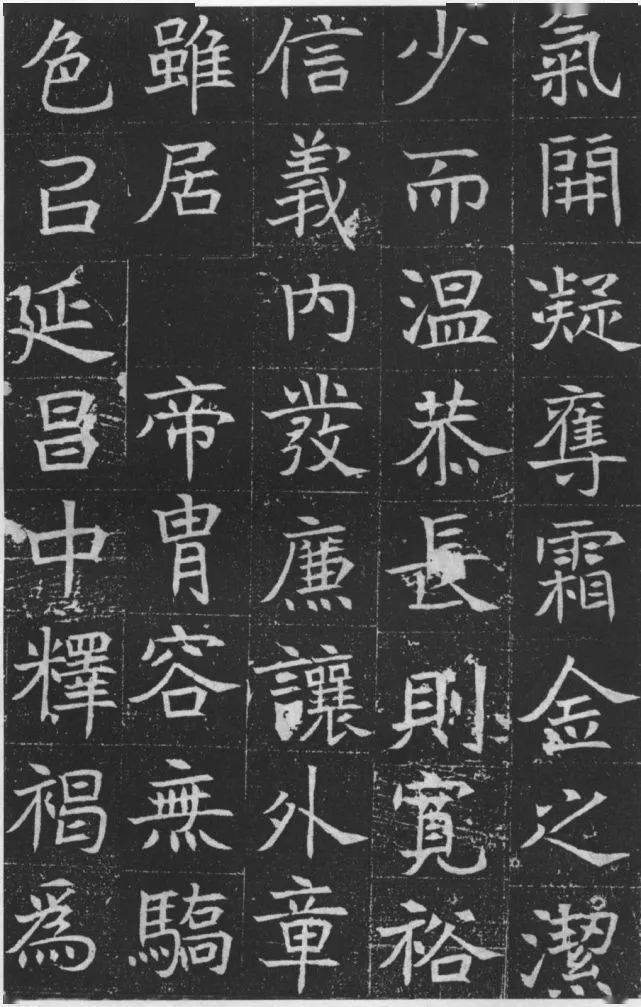 氣開凝奪霜金之潔
少而温恭長則寬裕
信義内發廉讓外章
雖居帝胄容無驕
色召延昌中釋褐爲